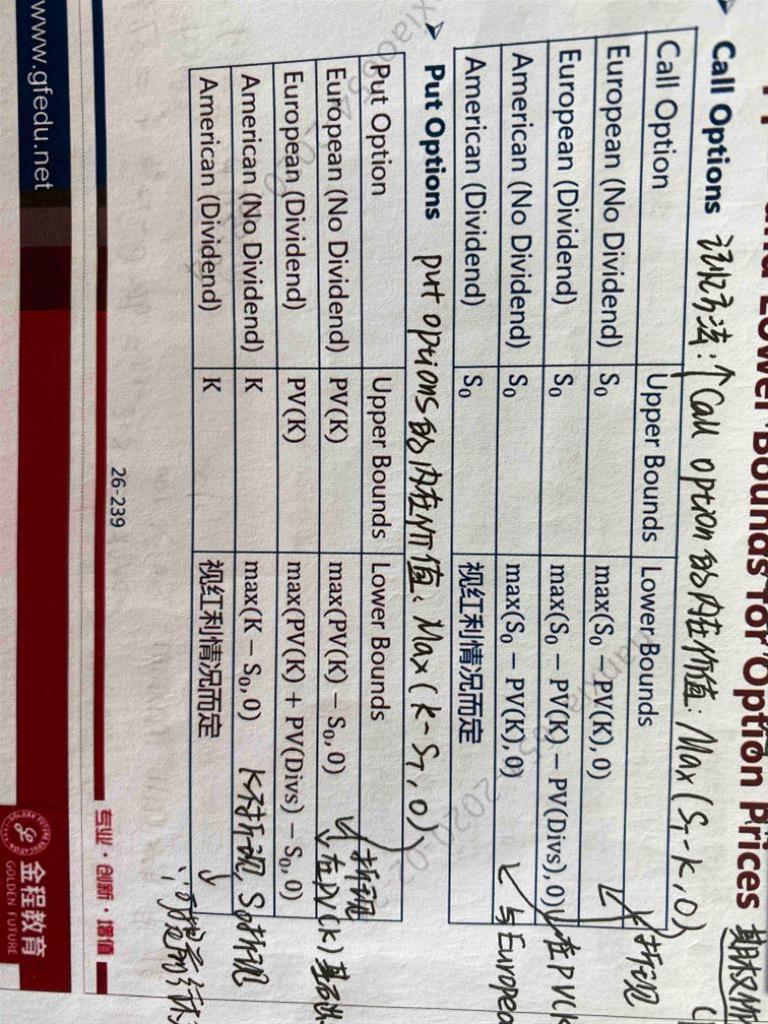 and Lower Bounds for Option Prices 期权价
Call Options 记忆方法:↑Call option的内在价值: Max(ST-K,0)
Call Option Upper Bounds Lower Bounds
European (No Dividend) S₀ max(S₀ − PV(K), 0) 折现
European (Dividend) S₀ max(S₀ − PV(K) − PV(Divs), 0) 在PV(K
American (No Dividend) S₀ max(S₀ − PV(K), 0) 与Europea
American (Dividend) S₀ 视红利情况而定
Put Options put options的内在价值: Max(K-ST,0)
Put Option Upper Bounds Lower Bounds
European (No Dividend) PV(K) max(PV(K) − S₀, 0) 折现
European (Dividend) PV(K) max(PV(K) + PV(Divs) − S₀, 0) 在PV(K)基础
American (No Dividend) K max(K − S₀, 0) K不折现, S0折现
American (Dividend) K 视红利情况而定
26-239
专业·创新·增值
www.gfedu.net
金程教育
GOLDEN FUTURE